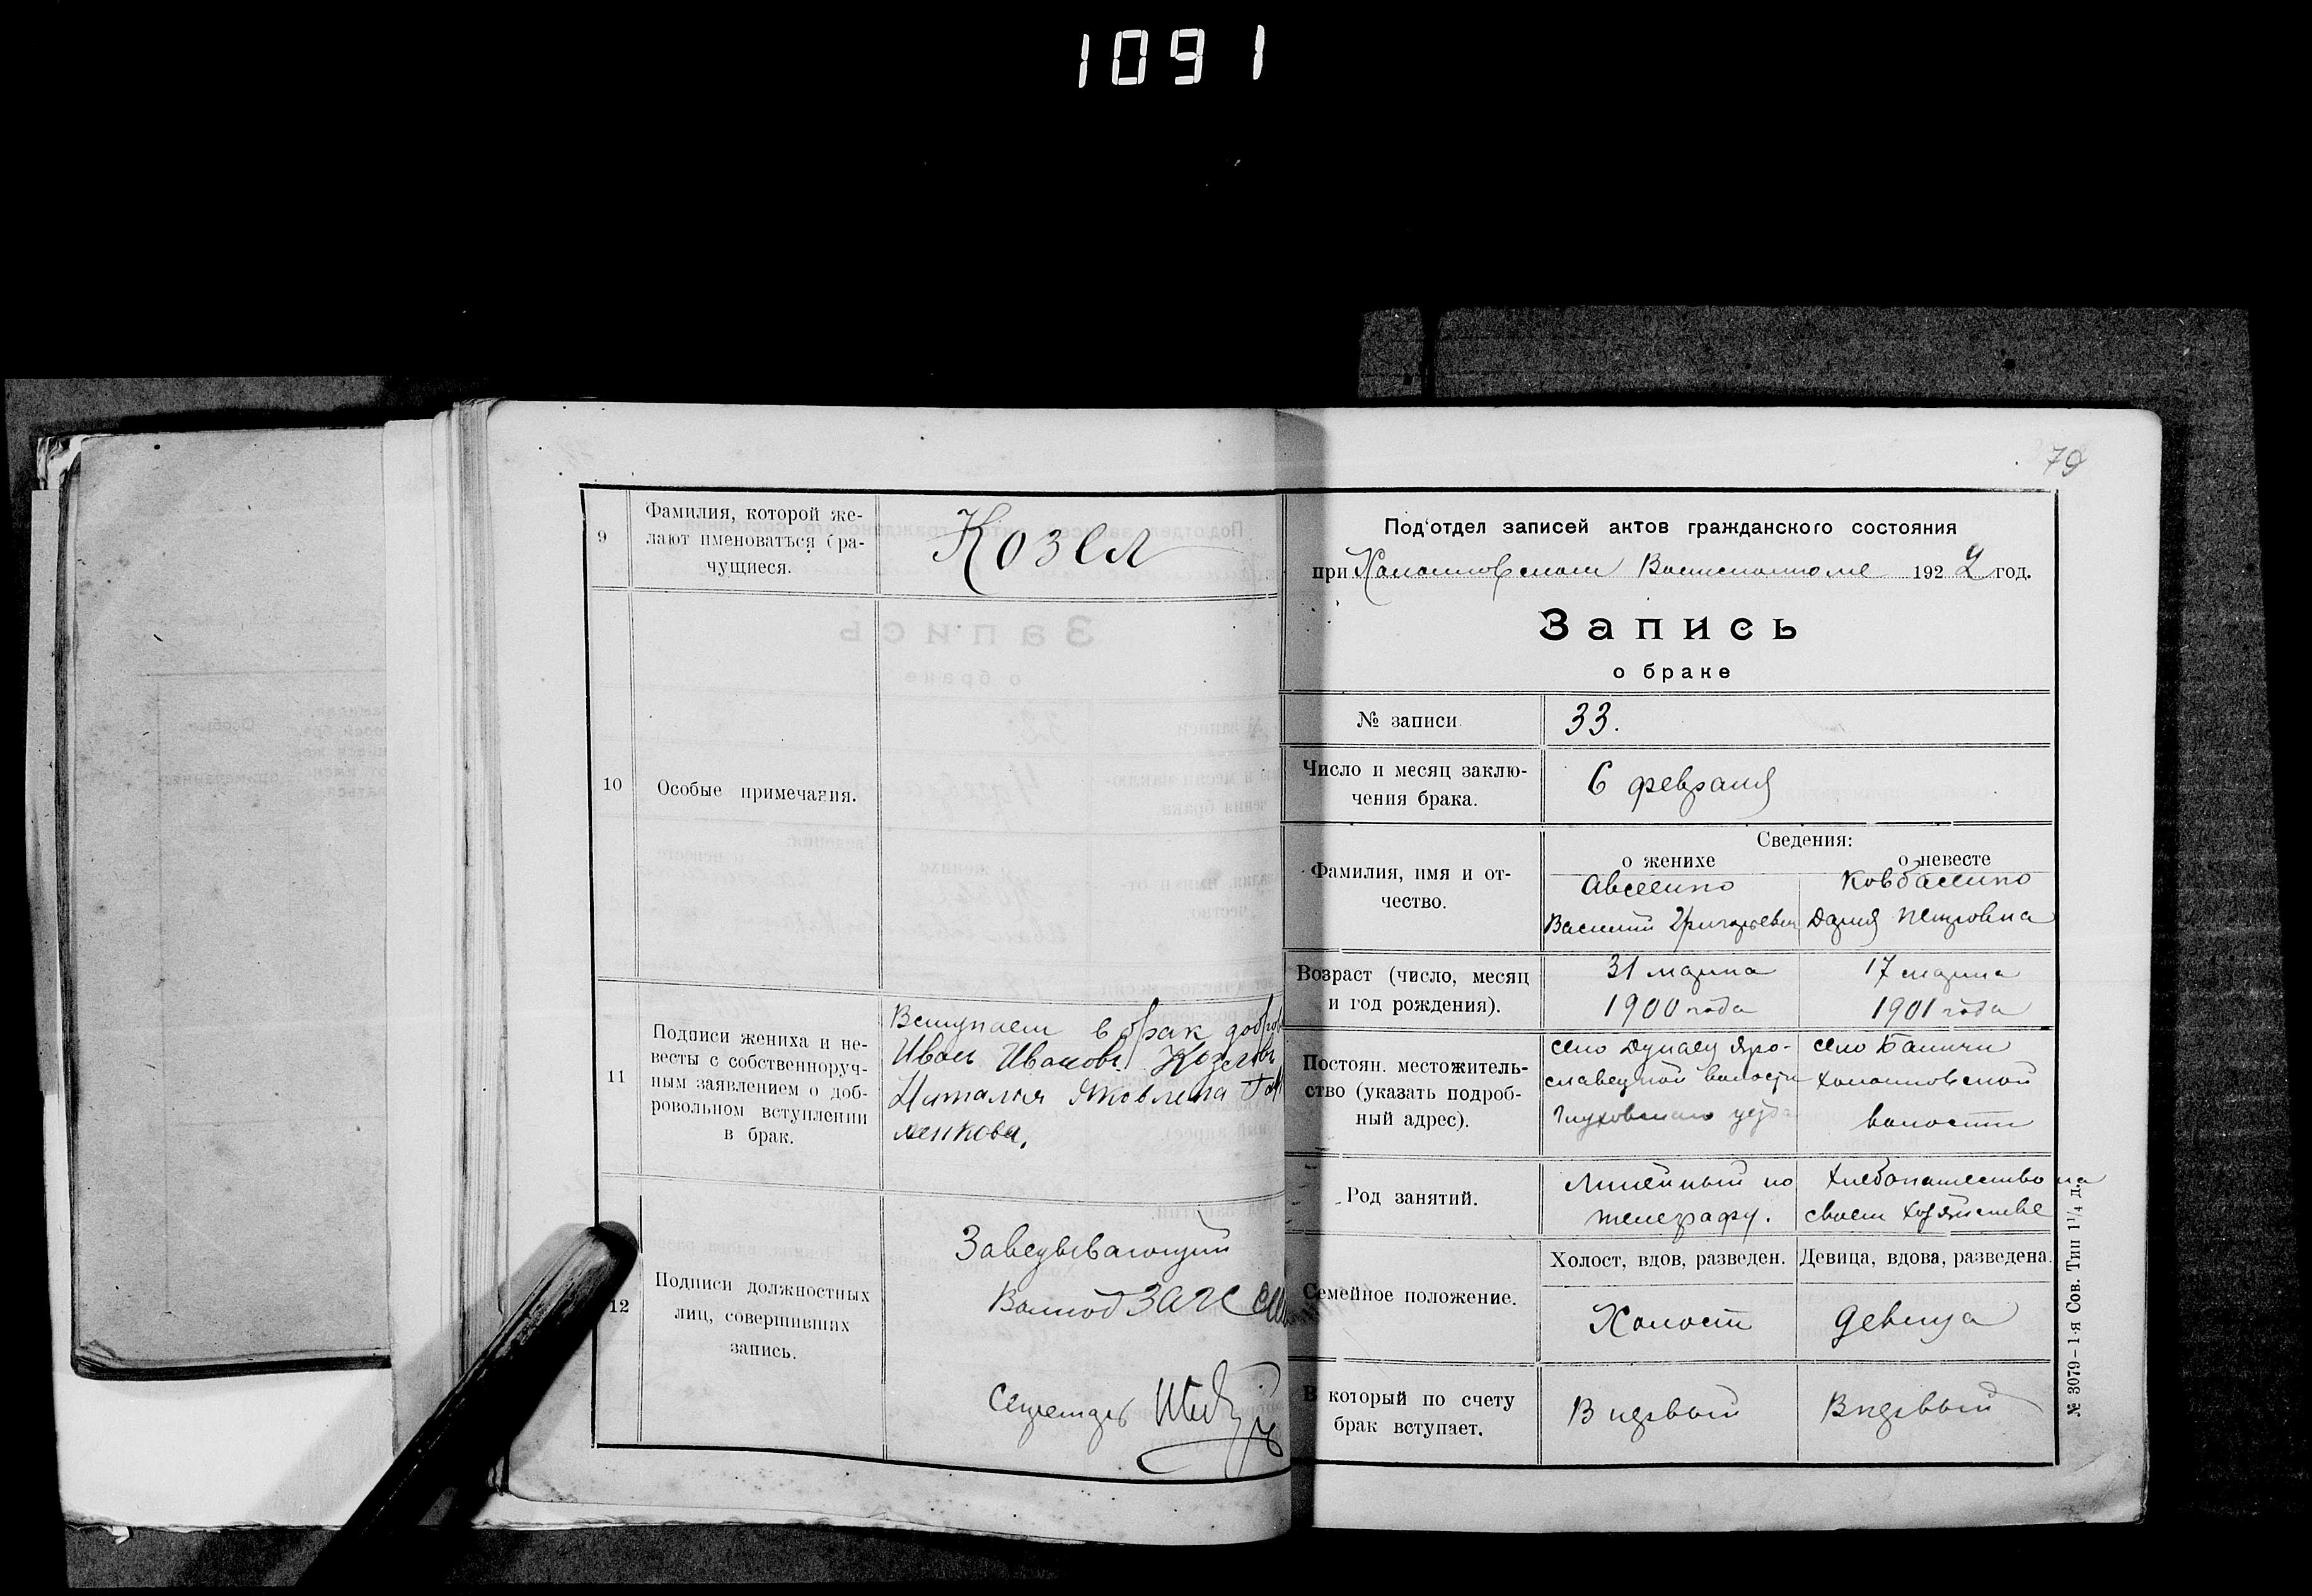 1091
9
Фамилия, которой же-
лают именоваться бра-
чущиеся.
Козел
10
Особые примечания.
11
Подписи жениха и не-
весты с собственноруч-
ным заявлением о доб-
ровольном вступлении
в брак.
Вступаем в брак добров
Иван Иванов Козелов
Наталия Яковлевна
ленкова.
12
Подписи должностных
лиц, совершивших
запись.
Заведывающий
Волпод ЗАГС
Секретарь
79
Под'отдел записей актов гражданского состояния
при Холопковском Волисполкоме 1922 год.
Запись
о браке
№ записи
33.
Число и месяц заклю-
чения брака.
6 февраля
Сведения:
о женихе
о невесте
Фамилия, имя и от-
чество.
Авсеенко
Василий Григорьевич
Ковбасенко
Дария Петровна
Возраст (число, месяц
и год рождения).
31 марта
1900 года
17 марта
1901 года
Постоян. местожитель-
ство (указать подроб-
ный адрес).
село Дунаец Яро-
славецкой волости
Глуховского уезда
село Баничи
Холопковской
волости
Род занятий.
Линейный по
телеграфу.
Хлебопашество на
своем хозяйстве
Семейное положение.
Холост, вдов, разведен.
Девица, вдова, разведена.
Холост
девица
В который по счету
брак вступает.
В первый
В первый
№ 3079–1-я Сов. Тип 1¼ д.